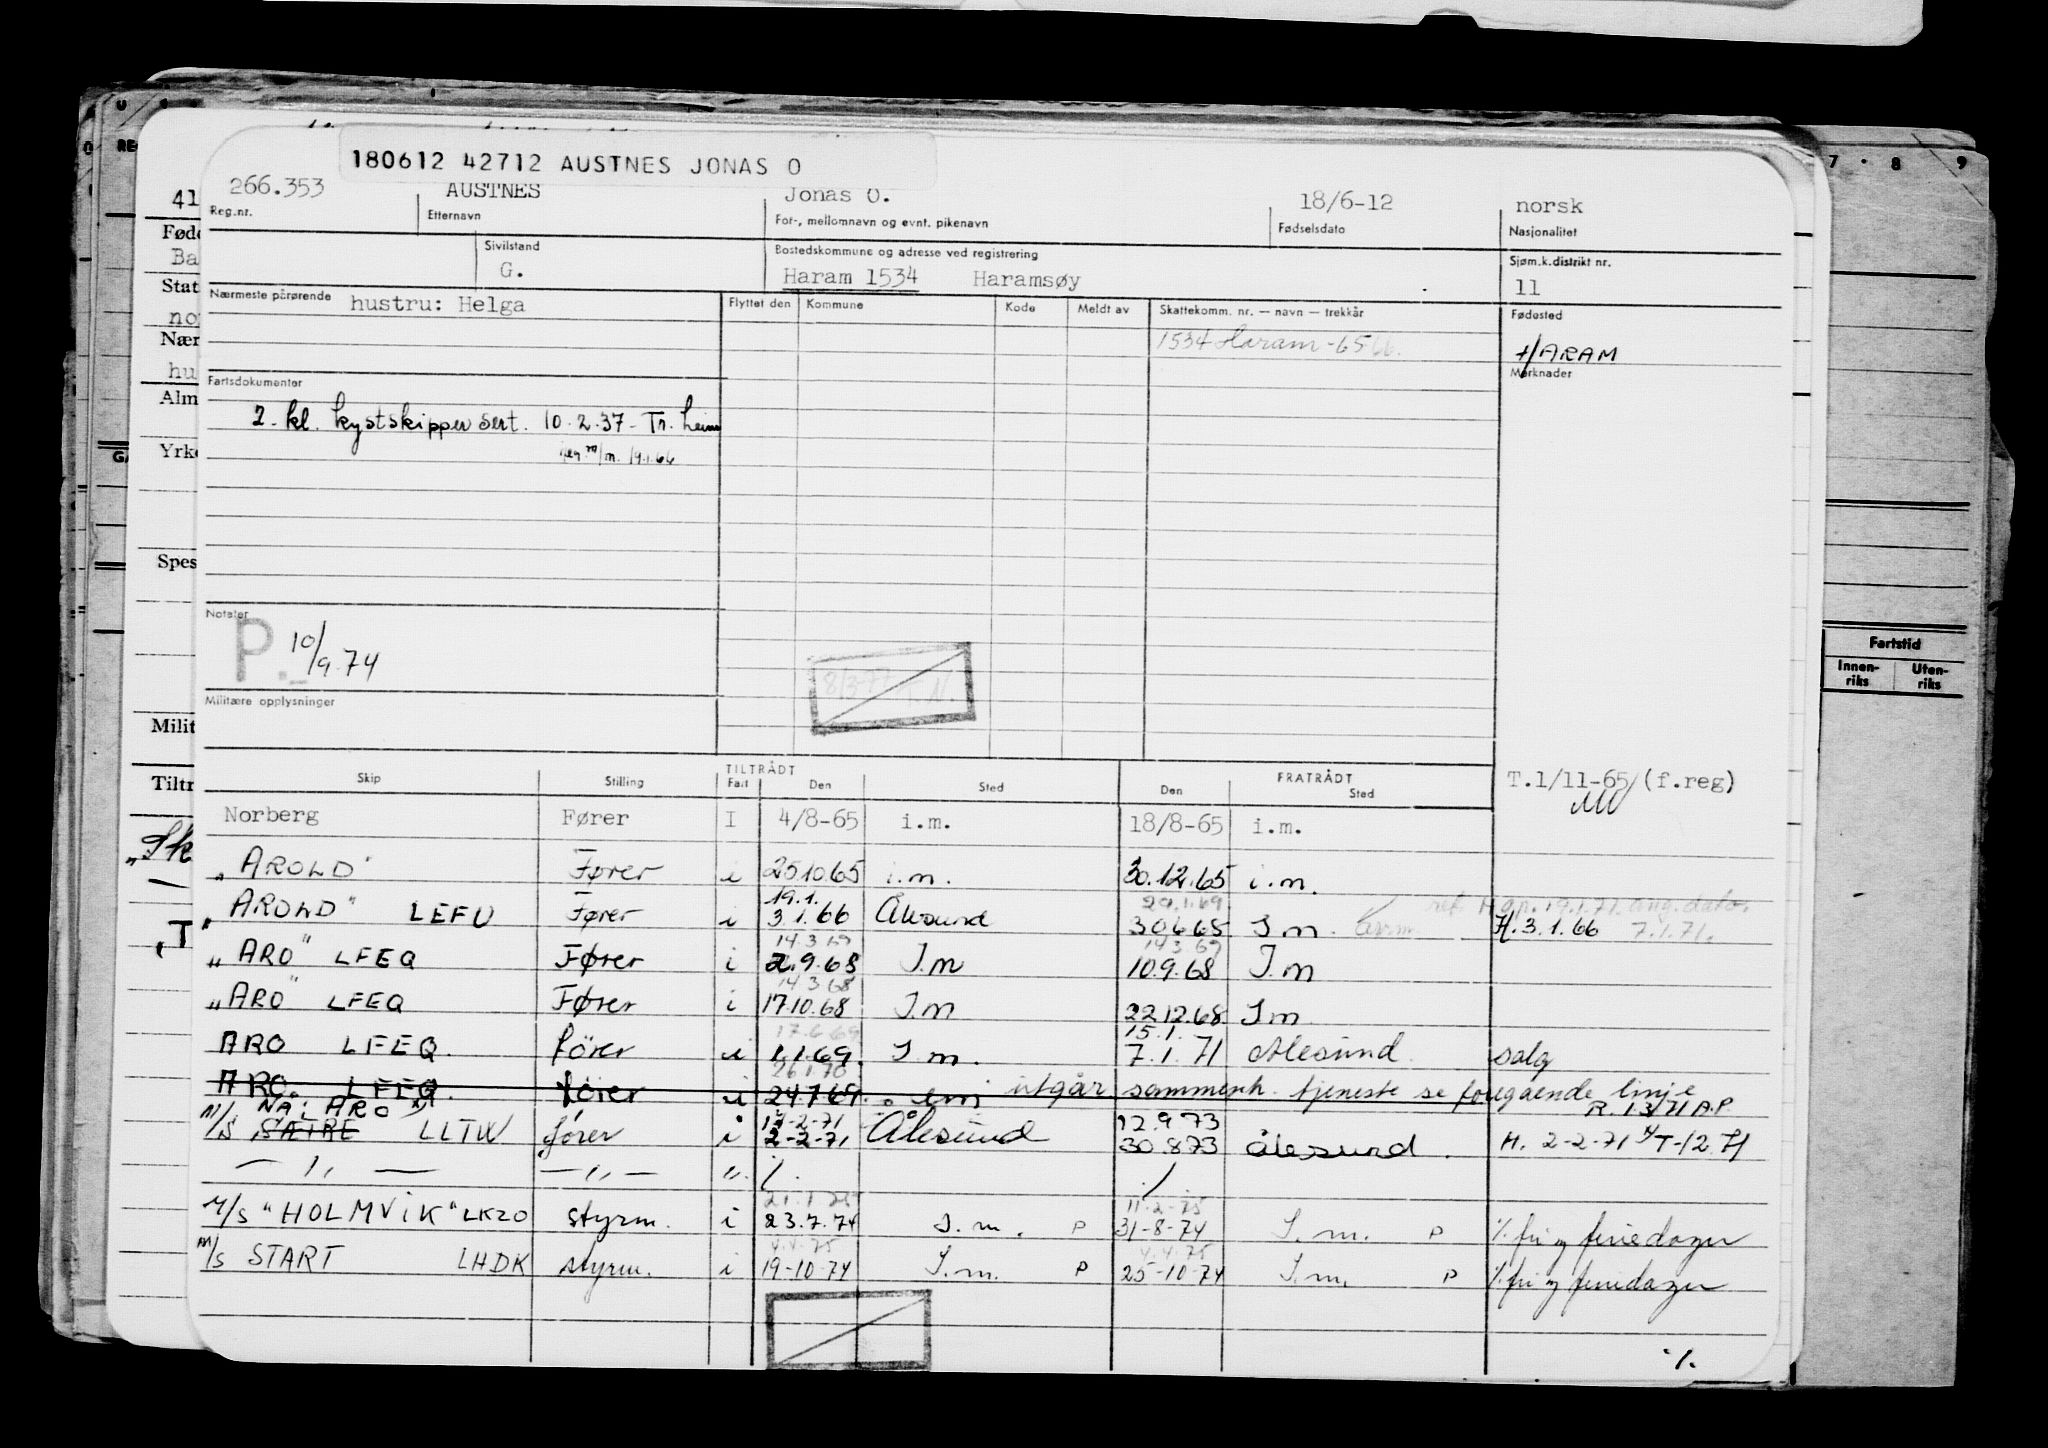 180612 42712 AUSTNES JONAS O
266.353 AUSTNES Jonas O. 18/6-12 norsk
Reg.nr. Etternavn For-, mellomnavn og evnt. pikenavn Fødselsdato Nasjonalitet
Sivilstand Bostedskommune og adresse ved registrering Sjøm.k.distrikt nr.
G. Haram 1534 Haramsøy 11
Nærmeste pårørende hustru: Helga Flyttet den Kommune Kode Meldt av Skattekomm. nr. — navn — trekkår Fødested
1534 Haram - 65 HARAM
Merknader
Fartsdokumenter
2. kl. kystskippersert. 10.2.37 - Tr. heim
19.1.66
Notater
P. 10/9.74
8/3-77 T.N.
Militære opplysninger
Skip Stilling TILTRÅDT Fart Den Sted FRATRÅDT Den Sted
T.1/11-65 (f.reg)
Norberg Fører I 4/8-65 i.m. 18/8-65 i.m.
"AROLD" Fører i 25.10.65 i.m. 30.12.65 i.m.
19.1. 29.1.69
"AROLD" LEFU Fører i 3.1.66 Ålesund 30.6.68 I.m. H. 3.1.66 7.1.71.
14.3.69 14.3.69
"ARO" LFEQ Fører i 2.9.68 I.m 10.9.68 I.m
14.3.68
"ARO" LFEQ Fører i 17.10.68 I.m 22.12.68 I.m
17.6.69 15.1.
ARO LFEQ. fører i 1.1.69. I.m. 7.1.71 Ålesund. salg
26.1.70
ARO. LFEQ. fører i 24.7.69. i.m utgår sammenh. tjeneste se foregående linje
NÅ: ARO 12-2-71 12.9.73 R. 1.3.71 A.P.
M/S SÆTRE LLTW fører i 2-2-71 Ålesund 30.8.73 Ålesund. H. 2-2-71 T-12.71
— " — — " — ". /. /.
21.1.75 11-2-75
M/S "HOLMVIK" LKZO styrm. i 23.7.74 I.m. P 31-8-74 I.m. P %fri og feriedager
4.4.75 4.4.75
M/S START LHDK styrm. i 19-10-74 I.m. P 25-10-74 I.m. P %fri og feriedager
./.
41
Føde
Ba
Stat
no
Nær
hu
Alm
Yrke
Spes
Milit
Tiltr
"Sk
"T
7 · 8 9
Fartstid
Innen-riks Uten-riks